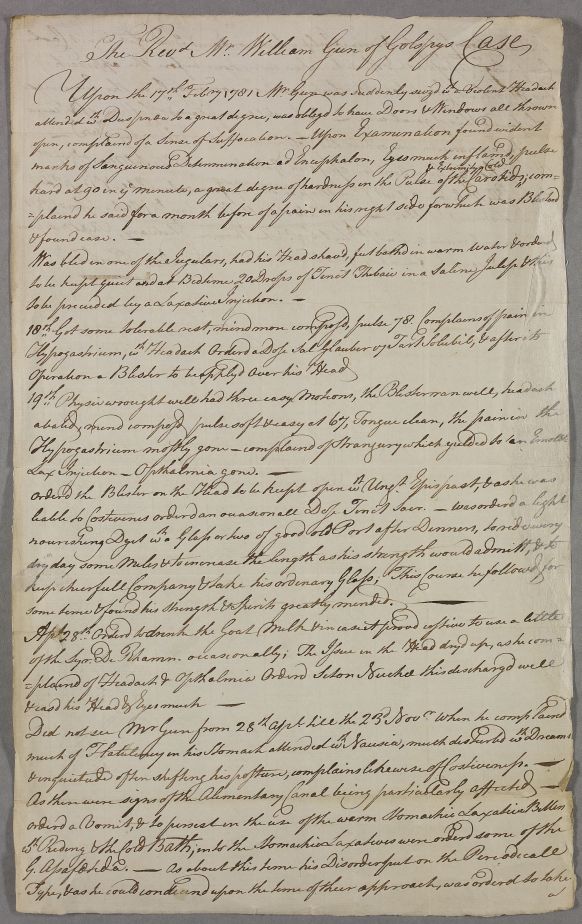 The Revd. Mr. William Gun of Golspys Case
Upon the 17th. Febry 1781 Mr Gun was suddenly seizd wt. a Violent Headach
attended wt. Duspnœa to a great degree, was obligd to have Doors & Windows all thrown
open, complaind of a Sense of Suffocation. — Upon Examination found evident
marks of Sanguinous Determination ad Encephalon, Eyes much inflamd, pulse
& Extremitys Cold
hard at 90 in ye minute, a great degree of hardness in the Pulse of the Carotids, com=
=plaind he said for a month before of a pain in his right side for which was Blooded
& found ease. —
Was bled in one of the Jugulars, had his Head shavd, feet bathd in warm Water & ordered
to be kept quiet and at Bedtime 20 Drops of Tinct Thebaic in a Saline Julep & this
to be preceeded by a Laxative Injection. —
18th. Got some tolerable rest, mind more composd, pulse 78. Complains of pain in
Hypogastrium, wt. Headach Orderd a Dose Sal Glauber vz Tart. Solubil, & after its
Operation a Blister to be applyd over his Head
19th. Physic wrought well had three easy Motions, the Blister ran well, headach
abated, mind composd pulse soft & easy at 67, Tongue clean, the pain in the
Hypogastrium mostly gone — complaind of Strangury which yielded to an Emollt.
Lax Injection — Opthalmia gone. —
Orderd the Blister on the Head to be keept open wt. Ungt. Epispast, & as he was
liable to Costivenes orderd an occasionall Dose Tinct Sacr. — was orderd a light
nourishing Dyet wt. a Glass or two of good old Port after Dinners, to ride every
dry day some Miles & to increase the length as his strength would admitt, & to
keep chearfull Company & take his ordinary Glass, This Course he followed for
some time & found his strength & Spirits greatly mended. —
Apl. 28th. Orderd to drink the Goat Milk & incase it proved costive to use a little
of the Syr. De Rhamn. occasionally; The Issue in the Head dryd up, as he com=
=plaind of Headach & Opthalmia Orderd Seton Nuchæ this dischargd well
& easd his Head & Eyes much —
Did not see Mr Gun from 28th Apl. till the 23d. Novr. when he complaind
much of Flatulency in his Stomach attended wt. Nausia, much disturbd wt. Dreams
& inquietude often shifting his posture, complains likewise of Costiveness. —
As there were signs of the Alimentary Canal being particularly affected —
orderd a Vomit, & to persist in the use of the warm Stomachic Laxative Bitters
Riding & the Cold Bath, into the Stomachic Laxatives were orderd some of the
G. Asafœtida. — As about this time his Disorder put on the Periodicall
Type, & as he could condicend upon the time of their approach, was orderd to take
a